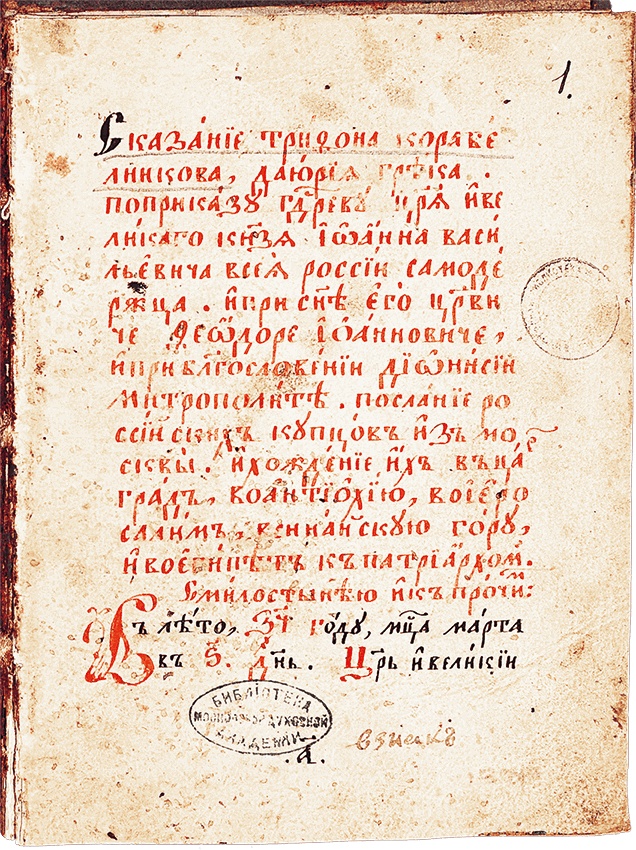 1.
Сказа́нїе трифона корабе
лникова, даю́рїѧ гре́ка .
поприка́зꙋ гдⷭ҇ревꙋ црѧ҃ и҆ве
ли́каго кнѧ҃зѧ і҆ѡа́нна васи
лье́вича всеѧ̀ россі́и самоде́
ржца . и҆при сн҃ѣ е҆го̀ цр҃ви
че ѳео́дѡре і҆ѡа́нновиче ,
и҆при благослове́нїи дїѡни́сїи
митрополи́тѣ . посла́нїе ро
ссі́искихъ кꙋпцо́въ и҆зъ мо
сквы̀ . и҆хожде́нїе и҆́хъ въца́
гра́дъ, воа҆нтїо́хїю, вої҆е́рꙋ
сали́мъ, всина́искꙋю го́рꙋ,
и҆вое҆ги́петъ къпатрїа́рхомъ .
Смилостынею и҆къ про́чим :
Въ лѣ́то, ЗЧ го́дꙋ, мцⷭ҇а ма́рта
въ Ѕ҃. Днь . Црь и҆вели́кїи
БИБЛІОТЕКА
МОСКОВСКОЙ ДУХОВНОЙ
АКАДЕМІИ
.а҃.